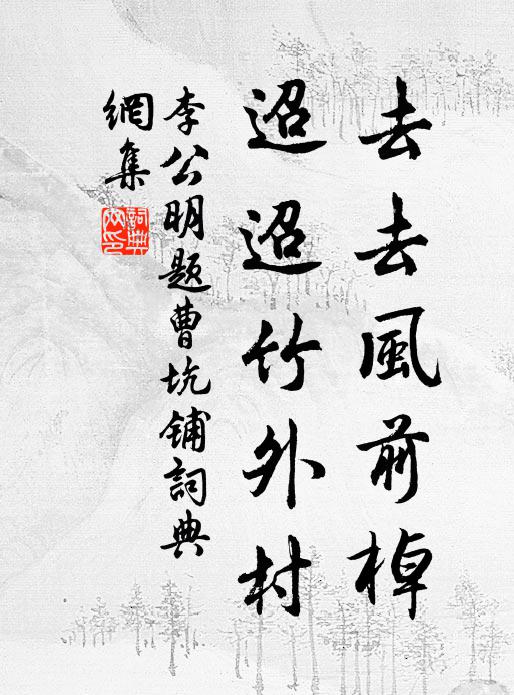 去去風前棹
迢迢竹外村
李公明題曹坑鋪詞典
網集
詞典
網印